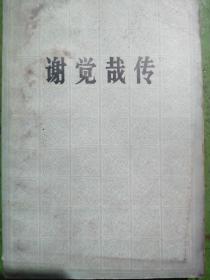 谢觉哉传